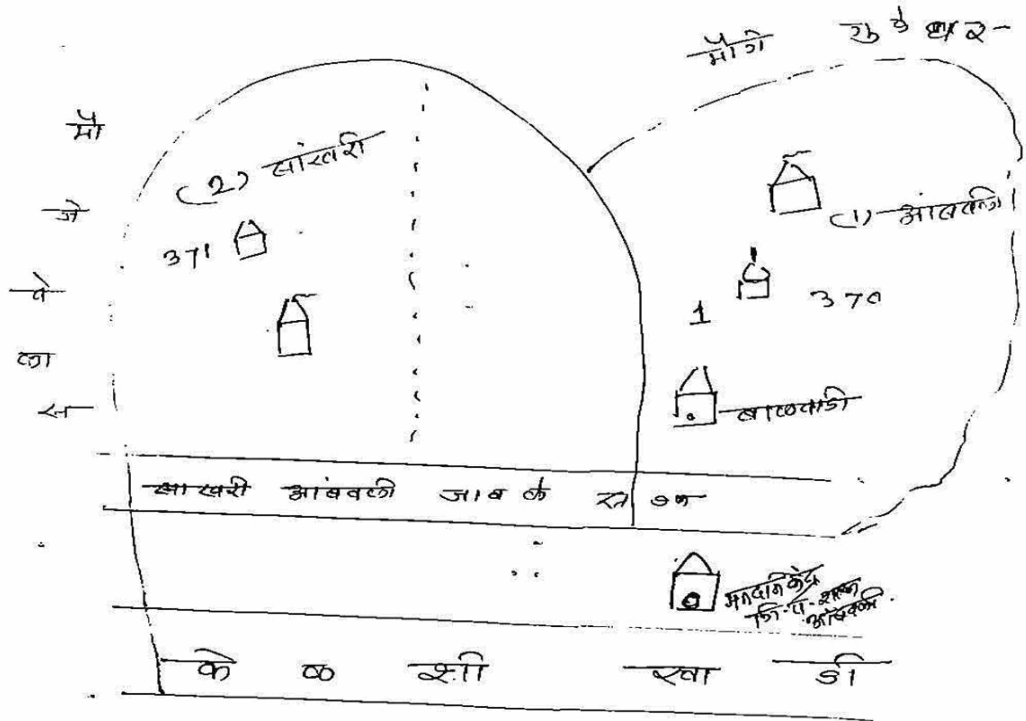 मौजे सुकेधर
मौ
जे
वे
का
स
(2) साखरी
371
(1) आंबवली
370
1
बाळवाडी
साखरी आंबवली जाब के रस्ता
मतदान केंद्र
जि-प-शाळा
आंबवली
के ळ शी खा डी